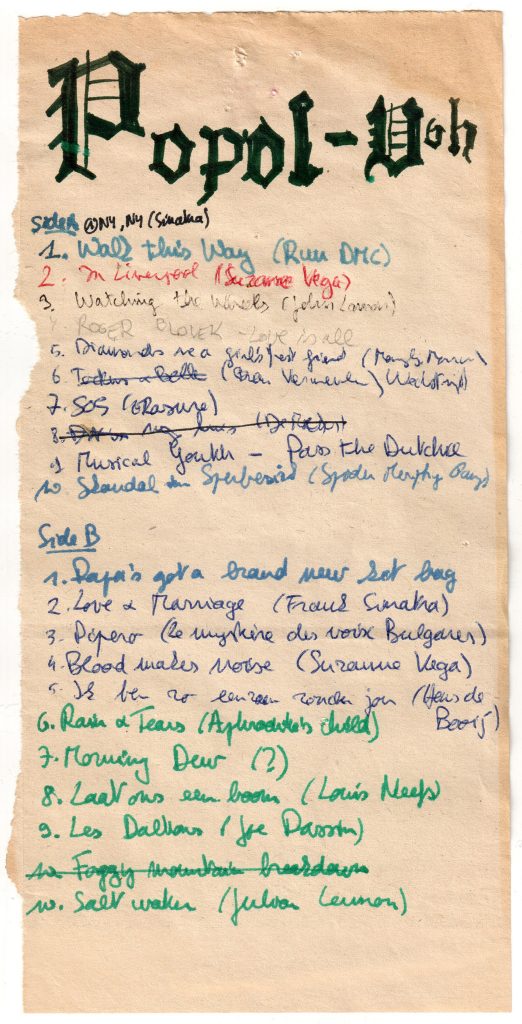 Popol-Vuh
Side A @ NY, NY (Sinatra)
1. Walk this Way (Run DMC)
2. In Liverpool (Suzanne Vega)
3. Watching the Wheels (John Lennon)
4. ROGER GLOVER - Love is all
5. Diamonds are a girls best friend (Marilyn Monroe)
6. (Bram Vermeulen)
7. SOS (ERasure)
8.
9. Musical Youth - Pass the Dutchie
10. Skandal im Sperbezirk (Spider Murphy Gang)
Side B
1. Papa's got a brand new bag
2. Love & Marriage (Frank Sinatra)
3. Dopero (Le mystère des voix Bulgares)
4. Blood makes noise (Suzanne Vega)
5. Ik ben zo eenzaam zonder jou (Hans de
Booij)
6. Rain & Tears (Aphrodite's child)
7. Morning Dew (?)
8. Laat ons een boom (Louis Neefs)
9. Les Daltons (Joe Dassin)
10. Foggy mountain breakdown
10. Salt water (Julian Lennon)